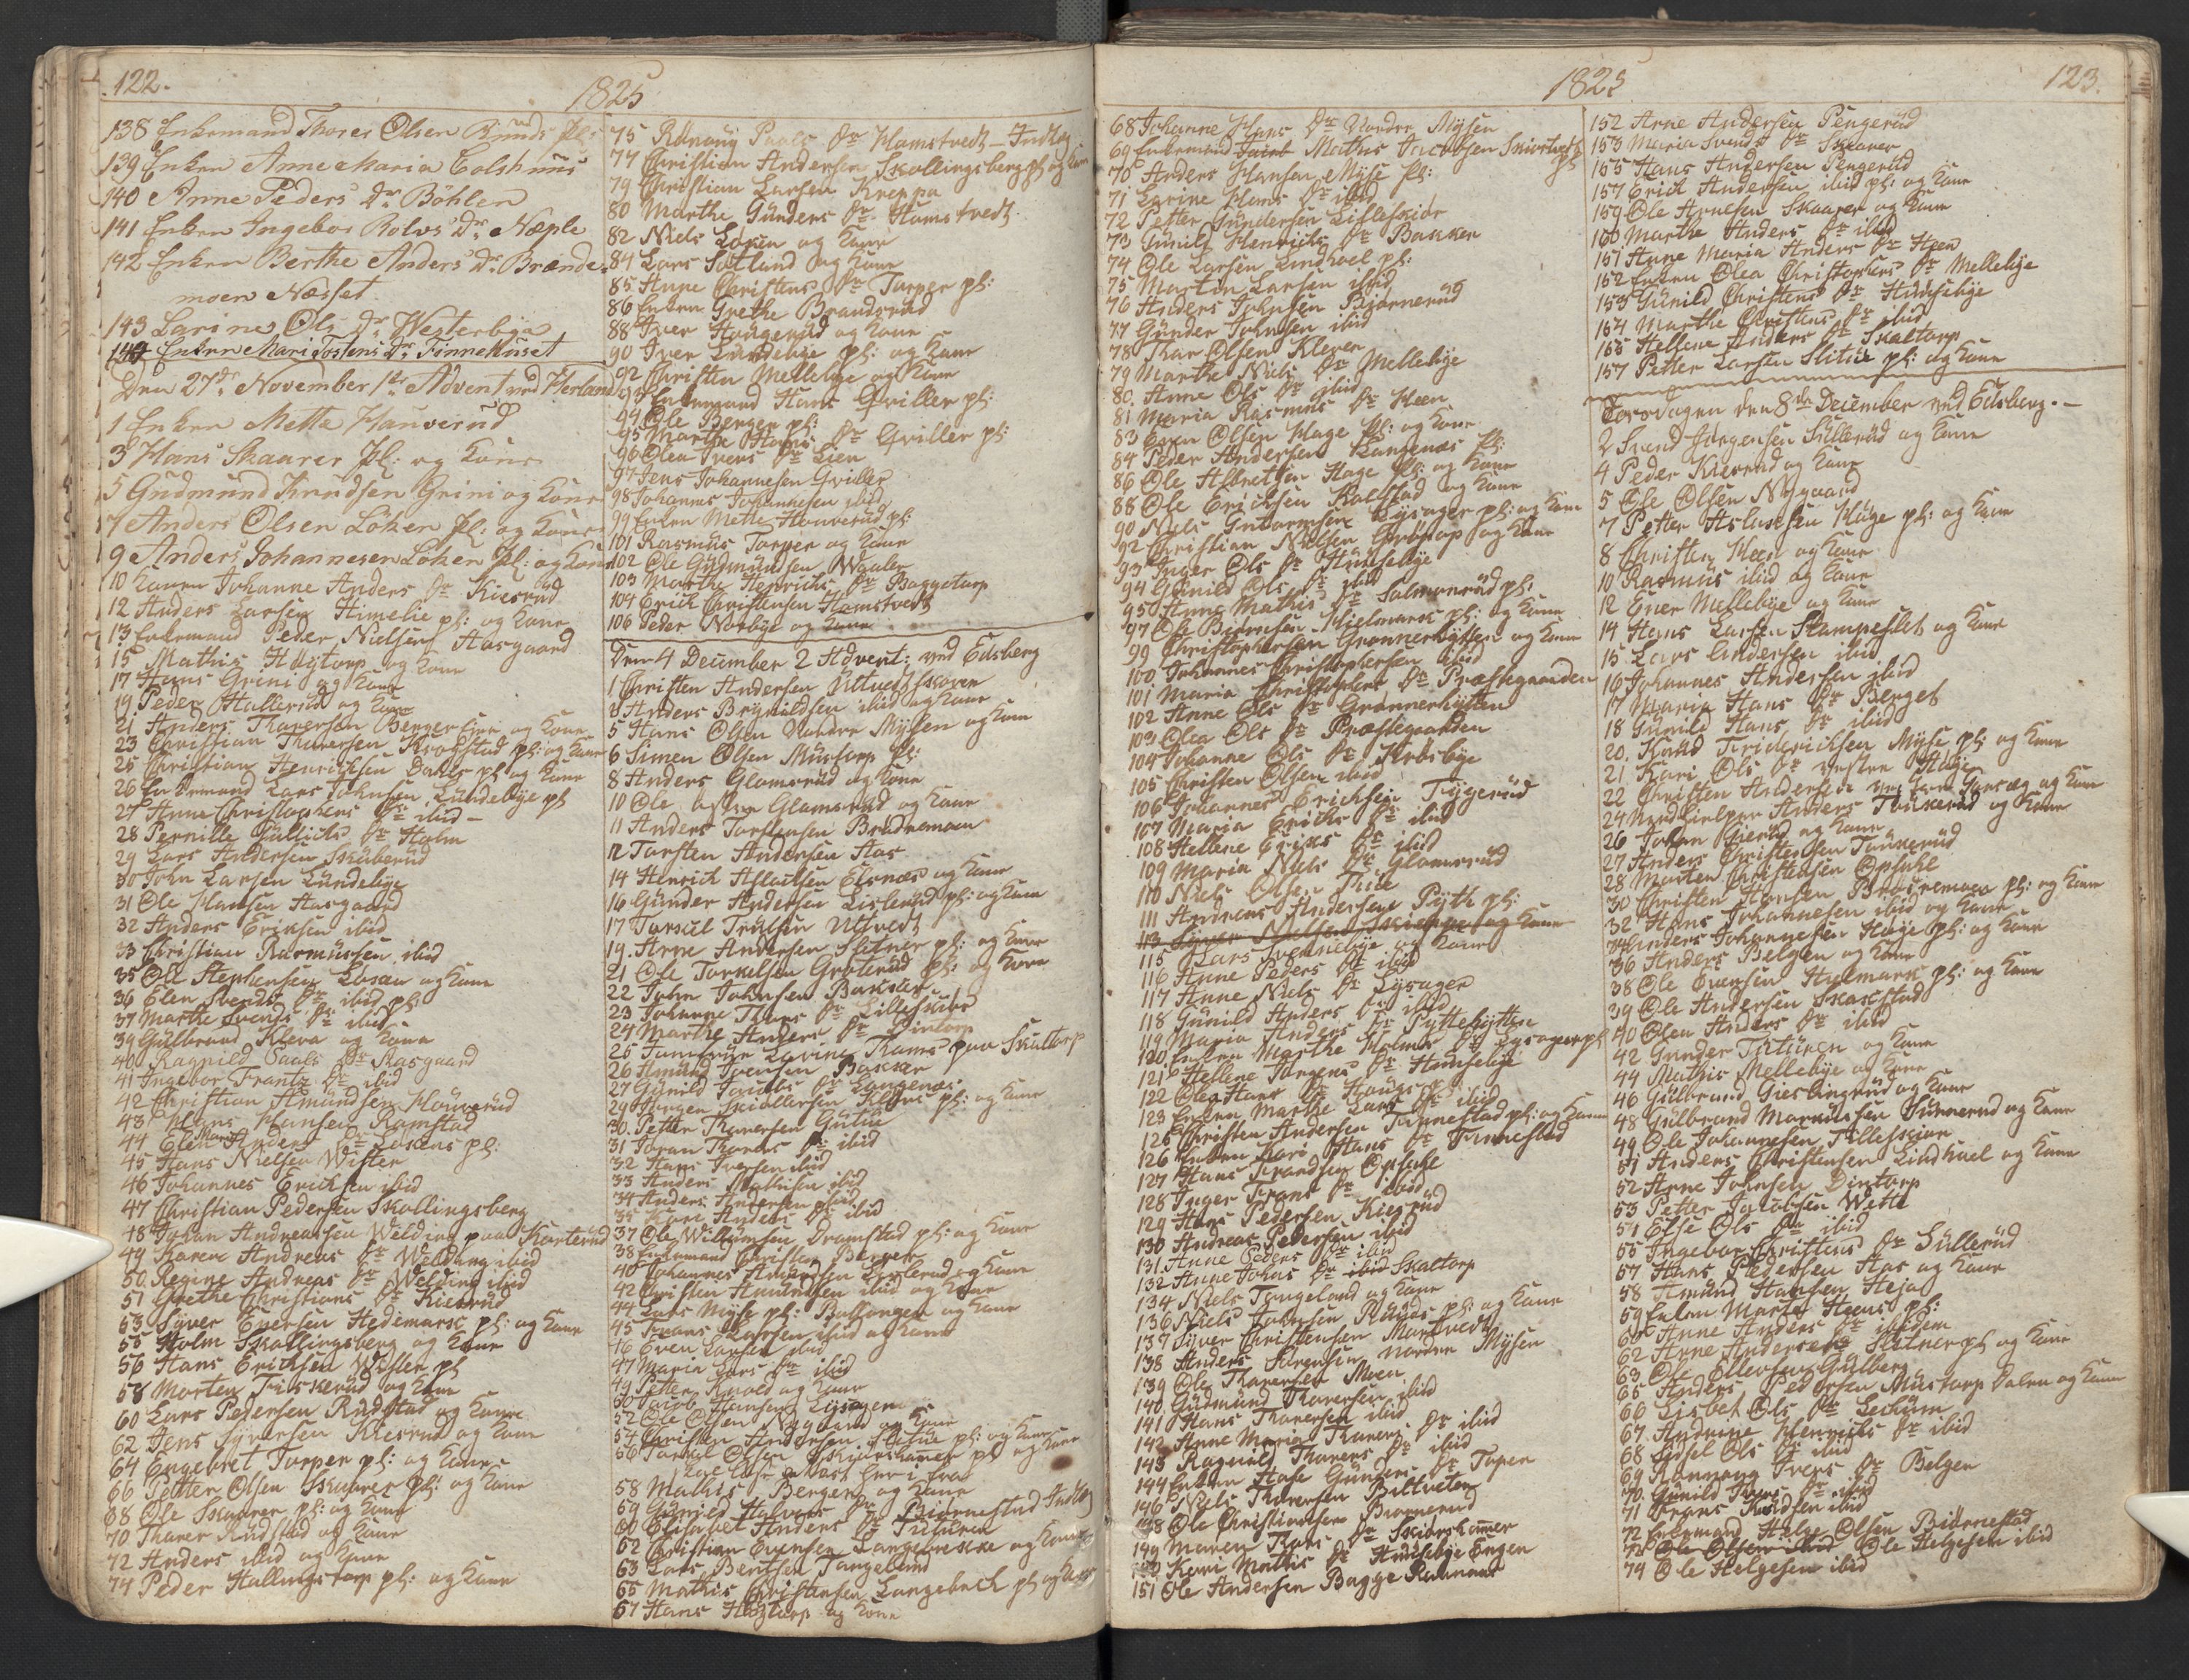 122.
1825
138 Enkemand Thorer Olsen Bünds Pl:
139 Enken Anne Maria Colshuus
140 Anne Peders Dr Böhler
141 Enken Ingebor Rolvs Dr Næple
142 Enken Berthe Anders Dr Brænde-
moen Næsset
143 Larine Ols Dr Westerbya
144 Enken Mari Tostens Dr Finnekaset
Den 27de November 1ste Advent ved Herland
1 Enken Mette Hauverud
3 Hans Skaarer Pl: og Kone
5 Gudmund Knudsen Grini og Kone
7 Anders Olsen Löken Pl: og Kone
9 Anders Johannesen Löken Pl: og Kone
10 Karen Johanne Anders Dr Kiesrud
12 Anders Larsen Himelie pl: og Kone
13 Enkemand Peder Nielsen Aasgaard
15 Mathis Höytorp og Kone
17 Hans Grini og Kone
19 Peder Hallerud og Kone
21 Anders Thorersen Berger og Kone
23 Christian Thorersen Krogstad pl: og Kone
25 Christian Henrichsen Dahls pl og Kone
26 Enkemand Lars Johnsen Lundebye pl
27 Anne Christophers Dr ibid
28 Pernille Gullichs Dr Holm
29 Lars Andersen Skuberud
30 John Larsen Lundebye
31 Ole Hansen Aasgaard
32 Anders Eriksen ibid
33 Christian Rasmussen ibid
35 Ole Stephensen Losen og Kone
36 Elen Svends Dr ibid pl
37 Marthe Svends Dr ibid
39 Gulbrand Kleva og Kone
40 Ragnild Paals Dr Aasgaard
41 Ingebor Frantz Dr ibid
42 Christian Amundsen Houverud
43 Hans Hansen Ramstad
44 Elen Maria Anders Dr Losens pl:
45 Hans Nielsen Wister
46 Johannes Ericksen ibid
47 Christian Pedersen Skollingsberg
48 Johan Andreasen Welding paa Korterud
49 Karen Andreas Dr Welding ibid
50 Regine Andreas Dr Welding ibid
51 Grethe Christians Dr Kiesrud
53 Syver Evensen Hedemark pl: og Kone
55 Holm Skallingsberg og Kone
56 Hans Ericksen Wister pl
58 Morten Fiskerud og Kone
60 Lars Pedersen Rudstad og Kone
62 Jens Syversen Kiesrud og Kone
64 Engebret Torper pl: og Kone
66 Petter Olsen Skaarer pl: og Kone
68 Ole Skaarer pl: og Kone
70 Thorer Rudstad og Kone
72 Anders ibid og Kone
74 Peder Hallingstorp pl: og Kone
75 Rönnoug Paals Dr Hamstvedt - Indlæg
77 Christian Andersen Skollingsberg pl og Kone
79 Christian Larsen Kreppa
80 Marthe Gunders Dr Hamstvedt
82 Niels Löken og Kone
84 Lars Sotlund og Kone
85 Anne Christens Dr Torper pl:
86 Enken Grethe Brandsrud
88 Iver Hougerud og Kone
90 Iver Lundebye pl: og Kone
92 Christen Mellebye og Kone
93 Enkemand Hans Gviller pl:
94 Ole Berger pl:
95 Marthe Hans Dr Gviller pl:
96 Olea Ivers Dr Lien
97 Jens Johannesen Gviller
98 Johannes Johannesen ibid
99 Enken Mette Houverud pl:
101 Rasmus Torper og Kone
102 Ole Gudmundsen Waaler
103 Marthe Henrichs Dr Baggetorp
104 Erick Christensen Hamstvedt
106 Peder Norbye og Kone
Den 4 December 2 Advent: ved Edsberg
1 Christen Andersen Utvedtskoven
3 Anders Brynildsen ibid og Kone
5 Hans Olsen Nordre Mysen og Kone
6 Simen Olsen Mustorp pl:
8 Anders Glomsrud og Kone
10 Ole Glomsrud og Kone
11 Anders Torstensen Brödremoen
12 Torsten Andersen Aas
14 Henrich Aslacksen Elsnæs og Kone
16 Gunder Andersen Lislerud pl: og Kone
17 Torsul Trulsen Utvedt
19 Arne Andersen Sletner pl: og Kone
21 Ole Torkelsen Groterud pl: og Kone
22 John Johnsen Bakken
23 Johanne Thors Dr Lilleskior
24 Marthe Anders Dr Dintorp
25 Larine Thoms paa Skaltorp
26 Amund Ivensen Bakken
27 Gunild Jacobs Dr Langenæs
29 Jörgen Kielleren Klevs pl: og Kone
30 Petter Thorersen Gutue
31 Joran Thorers Dr ibid
32 Hans Iversen ibid
33 Anders Mathisen ibid
34 Anders Andersen ibid
35 Kari Anders Dr ibid
37 Ole Wilumsen Dramstad pl: og Kone
38 Enkemand Christen Berger
40 Johannes Amundsen Lislerud og Kone
42 Christen Amundsen ibid og Kone
44 Lars Myse pl: Ballangen og Kone
45 Frans Larsen ibid og Kone
46 Even Larsen ibid
47 Maria Lars Dr ibid
49 Petter Arvold og Kone
50 Jacob Hansen Lysager
52 Ole Olsen Nygaard og Kone
54 Christen Andersen Slitue pl: og Kone
56 Torkel Olsen Skiorshamer pl og Kone
58 Mathis Bergen og Kone
59 Gunild Halvors Dr Biörnestad Indlæg
60 Elisabet Anders Dr Tuturen
62 Christian Evensen Langebrekke og Kone
63 Lars Bentsen Tangeland
65 Mathis Christensen Langebrek pl og Kone
67 Hans Höytorp og Kone
1825
123.
68 Johanne Hans Dr Nordre Mysen
69 Enkemand Mathis Jacobsen Skiostvedt pl
70 Anders Hansen Myse pl:
71 Larine Hans Dr ibid
72 Petter Gundersen Lilleskior
73 Gunild Henrichs Dr Bakken
74 Ole Larsen Lindhoel pl:
75 Martin Larsen ibid
76 Anders Johnsen Biörnerud
77 Gunder Johnsen ibid
78 Thor Olsen Kleven
79 Marthe Niels Dr Mellebye
80 Anne Ols Dr ibid
81 Maria Rasmus Dr Heen
83 Even Olsen Hage pl: og Kone
84 Peder Andersen Langenæs pl:
86 Ole Asbretsen Hage pl: og Kone
88 Ole Ericksen Rolfstad og Kone
90 Niels Guttormsen Lysager pl: og Kone
92 Christian Nielsen Gröstop og Kone
93 Inger Ols Dr Hundsebye
94 Gunild Ols Dr ibid
95 Anne Mathis Dr Salmonrud pl:
97 Ole Biörnsen Hielmark pl: og Kone
99 Christophersen Grönnerhytten og Kone
100 Johannes Christophersen ibid
101 Maria Christophers Dr Præstegaarden
102 Anne Ols Dr Grönnerhytten
103 Olea Ols Dr Præstegaarden
104 Johanne Ols Dr Krosbye
105 Christen Olsen ibid
106 Johannes Ericksen Tygerud
107 Maria Ericks Dr ibid
108 Hellene Ericks Dr ibid
109 Maria Niels Dr Glomsrud
110 Niels Olsen Frie
111 Andreas Andersen Pyth pl:
113 Syver Nielsen Skieppe og Kone
115 Lars Svennebye og Kone
116 Anne Peders Dr ibid
117 Anne Niels Dr Lysager
118 Gunild Anders Dr ibid
119 Maria Anders Dr Pyttehytten
120 Enken Marthe Holms Dr Lysager pl
121 Hellene Jörgens Dr Hundsebye
122 Olea Hans Dr Haugerud
123 Enken Marthe Lars Dr ibid
125 Christen Andersen Finnestad pl: og Kone
126 Enken Kari Hans Dr Finnestad
127 Hans Frandsen Opsahl
128 Inger Frans Dr ibid
129 Hans Pedersen Kiesrud
130 Andreas Pedersen ibid
131 Anne Peders Dr ibid
132 Anne Johns Dr ibid Skaltorp
134 Niels Tangeland og Kone
136 Niels Johnsen Ruuds pl: og Kone
137 Syver Christensen Mortvedt
138 Anders Sörensen nordre Mysen
139 Ole Thorersen Moen
140 Gudmund Thorersen ibid
141 Hans Thorersen ibid
142 Anne Maria Thorers Dr ibid
143 Ragnild Thorers Dr ibid
144 Enken Aase Gunders Dr Toper
146 Niels Thoresen Bittveten
148 Ole Christiansen Biornerud
149 Maren Lars Dr Skiorshamer
150 Kari Mathis Dr Hundsebye Engen
151 Ole Andersen Bagge Rammand
152 Arne Andersen Pengerud
153 Maria Svends Dr Skaarer
155 Hans Andersen Pengerud
157 Erick Andersen ibid pl: og Kone
159 Ole Arnesen Skaarer og Kone
160 Marthe Anders Dr ibid
151 Anne Maria Anders Dr Heen
152 Enken Olea Christophers Dr Mellebye
153 Gunild Christens Dr Hundsebye
154 Marthe Christens Dr ibid
155 Hellene Anders Dr Skaltorp
157 Petter Larsen Slitue pl: og Kone
Torsdagen den 8de December ved Edsberg.
2 Svend Jörgensen Sullerud og Kone
4 Peder Kiesrud og Kone
5 Ole Olsen Nygaard
7 Petter Aslacksen Hage pl: og Kone
8 Christen Heen og Kone
10 Rasmus ibid og Kone
12 Ener Mellebye og Kone
14 Hans Larsen Stampeflet og Kone
15 Lars Andersen ibid
16 Johannes Andersen ibid
17 Maria Hans Dr Berget
18 Gunild Hans Dr ibid
20 Knud Friderichsen Myse pl: og Kone
21 Kari Ols Dr vestre Huge
22 Christen Andersen
24 Anders Tuskerud og Kone
26 Johan Gierud og Kone
27 Anders Christensen Tunkerud
28 Morten Christensen Opsahl
30 Christen Hansen Brödremoen pl: og Kone
32 Hans Johannesen ibid og Kone
34 Anders Johannesen Huge pl: og Kone
36 Anders Belgen og Kone
38 Ole Evensen Hielmark pl: og Kone
39 Ole Andersen Skakstad
40 Olea Anders Dr ibid
42 Gunder Tuturen og Kone
44 Mathis Mellebye og Kone
46 Gulbrand Gieslingrud og Kone
48 Gulbrand Markussen Sunnerud og Kone
49 Ole Johannesen Lilleskior
51 Anders Christensen Lindhoel og Kone
52 Arne Johnsen Dintorp
53 Petter Jacobsen Wette
54 Else Ols Dr ibid
55 Ingebor Christens Dr Sullerud
57 Hans Pedersen Aas og Kone
58 Amund Hansen Heja
59 Enken Marthe Heens pl:
60 Anne Anders Dr ibidem
62 Arne Andersen Sletner pl: og Kone
63 Ole Ellevsen Gulberg
65 Anders Pedersen Mustorp Dalen og Kone
66 Lisbet Ols Dr Lekum
67 Andrine Henrichs Dr ibid
68 Sidsel Ols Dr ibid
69 Rönnoug Ivers Dr Belgen
70 Gunild Ivers Dr ibid
71 Frans Knudsen ibid
72 Enkemand Helge Olsen Biörnestad
73 Ole Helgesen ibid
74 Ole Helgesen ibid